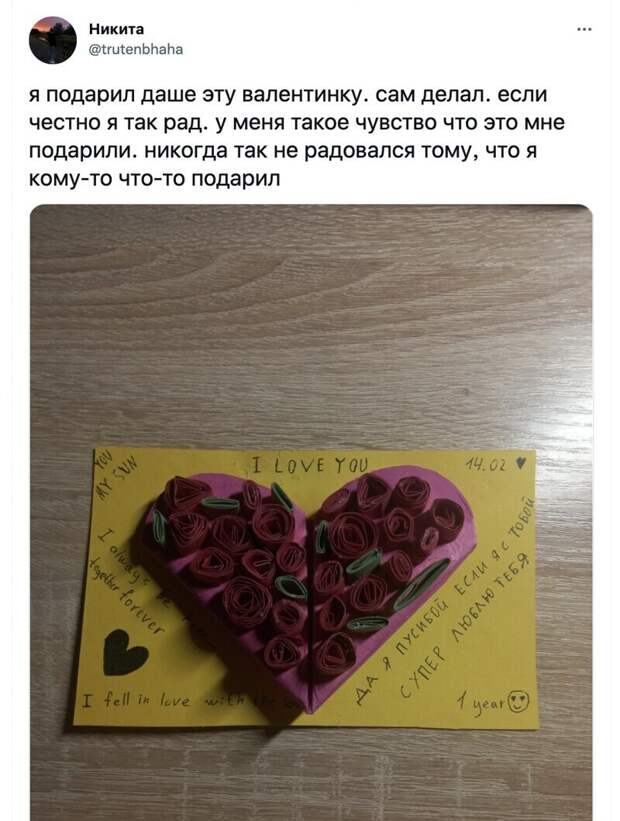 Никита
@trutenbhaha
я подарил даше эту валентинку. сам делал. если
честно я так рад. у меня такое чувство что это мне
подарили. никогда так не радовался тому, что я
кому-то что-то подарил
YOU
MY SUN
I LOVE YOU
14.02
I always be
together forever
I fell in love with the
ДА Я ПУСИБОЙ ЕСЛИ Я С ТОБОЙ
СУПЕР ЛЮБЛЮ ТЕБЯ
1 year